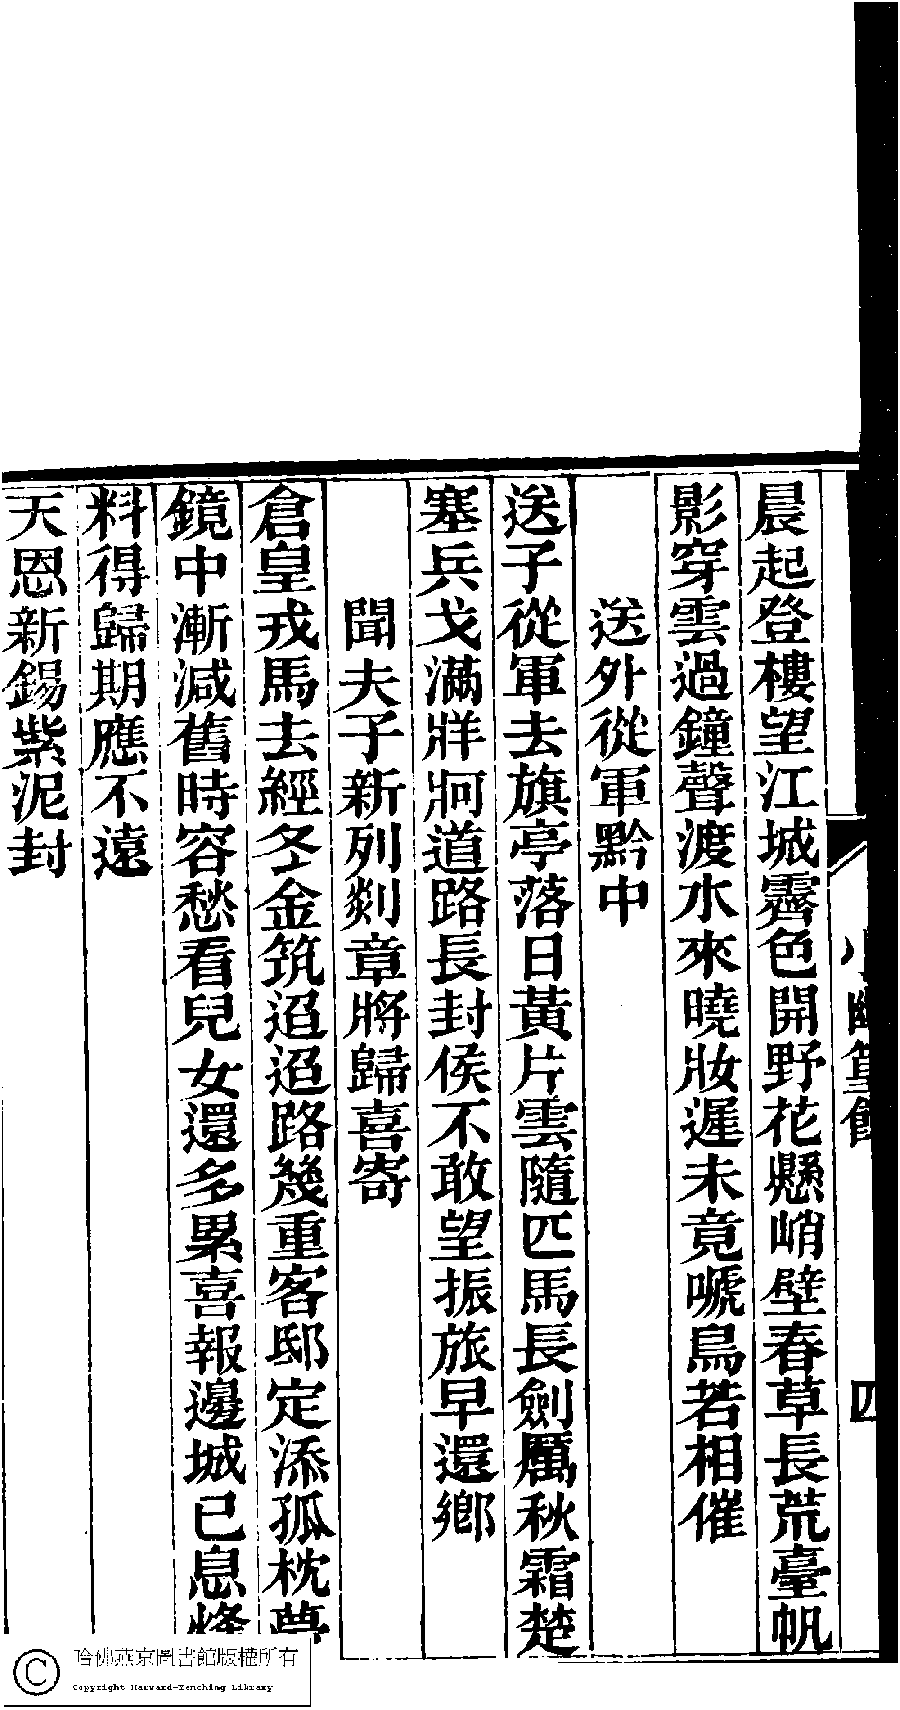 幽篁館
四
晨起登樓望江城霽色開野花懸峭壁春草長荒臺帆
影穿雲過鐘聲渡水來曉妝遲未竟嗁鳥若相催
送外從軍黔中
送子從軍去旗亭落日黃片雲隨匹馬長劍厲秋霜楚
塞兵戈滿牂牁道路長封侯不敢望振旅早還鄉
聞夫子新列剡章將歸喜寄
倉皇戎馬去經冬金筑迢迢路幾重客邸定添孤枕夢
鏡中漸減舊時容愁看兒女還多累喜報邊城已息烽
料得歸期應不遠
天恩新錫紫泥封
哈佛燕京圖書館版權所有
Copyright Harvard-Yenching Library